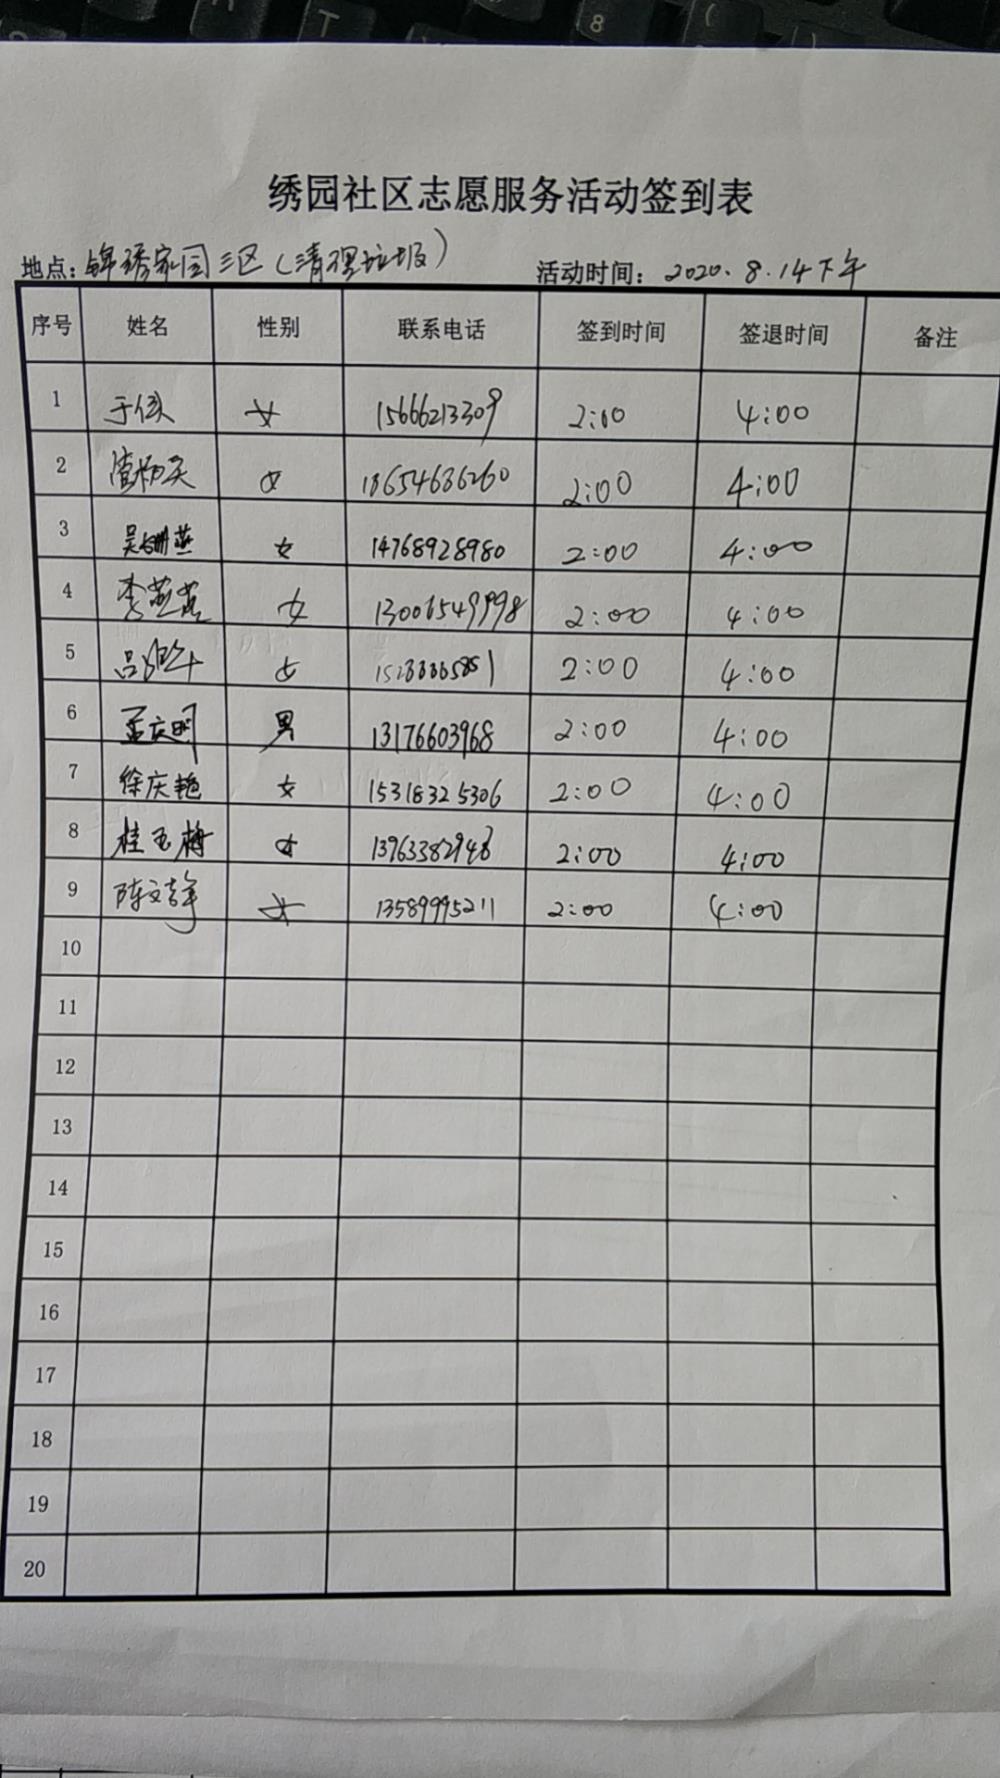 绣园社区志愿服务活动签到表
地点：锦绣家园三区（清理垃圾） 活动时间：2020.8.14下午
序号 姓名 性别 联系电话 签到时间 签退时间 备注
1 女 15666213309 2:00 4:00
2 女 18654686260 2:00 4:00
3 吴姗燕 女 14768928980 2:00 4:00
4 李燕燕 女 13006549998 2:00 4:00
5 女 2:00 4:00
6 孟庆明 男 13176603968 2:00 4:00
7 徐庆艳 女 15318325306 2:00 4:00
8 桂玉梅 女 13963382948 2:00 4:00
9 陈文静 女 13589995211 2:00 4:00
10
11
12
13
14
15
16
17
18
19
20